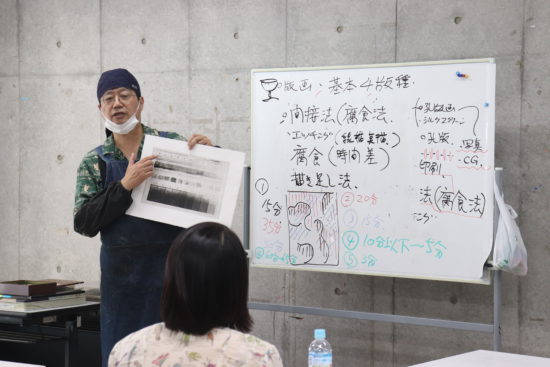 版画:基本4版種
○間接法(腐食法
○エッチング(線描・直描)
腐食(時間差)
描き足し法
①
15分
35分
②20分
③15分
④10分以下〜5分
⑤5分
孔版画
シルクスクリーン
○孔版
写真
CG
印刷
法(腐食法)